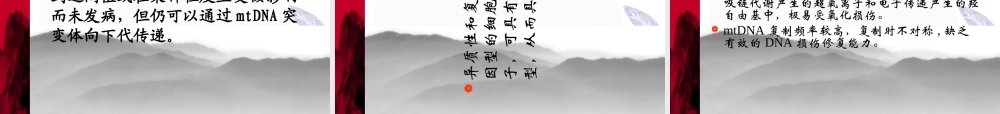 而未发病，但仍可以通过 mtDNA 突
变体向下代传递。
异质性和复
因型的细胞
子，可具有
型，从而具
吸链代谢产生的超氧离子和电子传递产生的羟
自由基中，极易受氧化损伤。
mtDNA 复制频率较高，复制时不对称，缺乏
有效的 DNA 损伤修复能力。